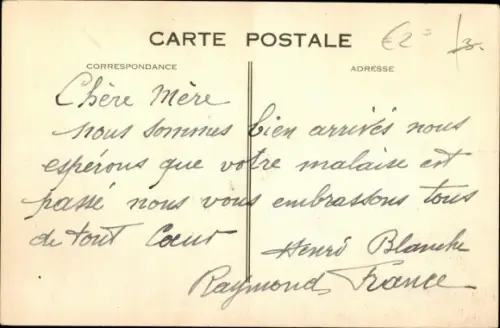 CARTE POSTALE
€2=
3.
CORRESPONDANCE
ADRESSE
Chère Mère
nous sommes bien arrivés nous
espérons que votre malaise est
passé nous vous embrassons tous
de tout Cœur
Henri Blanche
Raymond, France